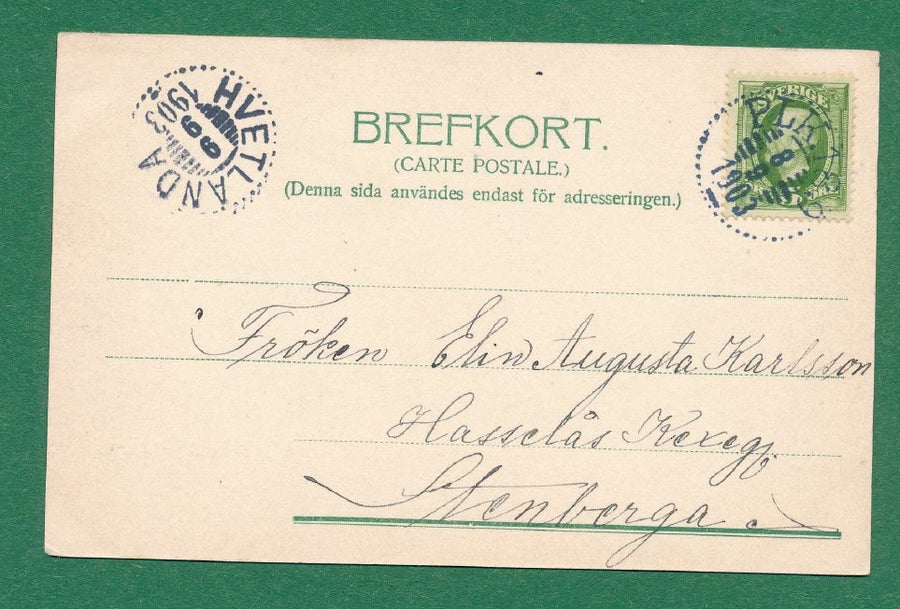 HVETLANDA
1903
6 9
SVERIGE
1903
BREFKORT.
(CARTE POSTALE.)
(Denna sida användes endast för adresseringen.)
Fröken Elin Augusta Karlsson
Hasselås
Stenberga